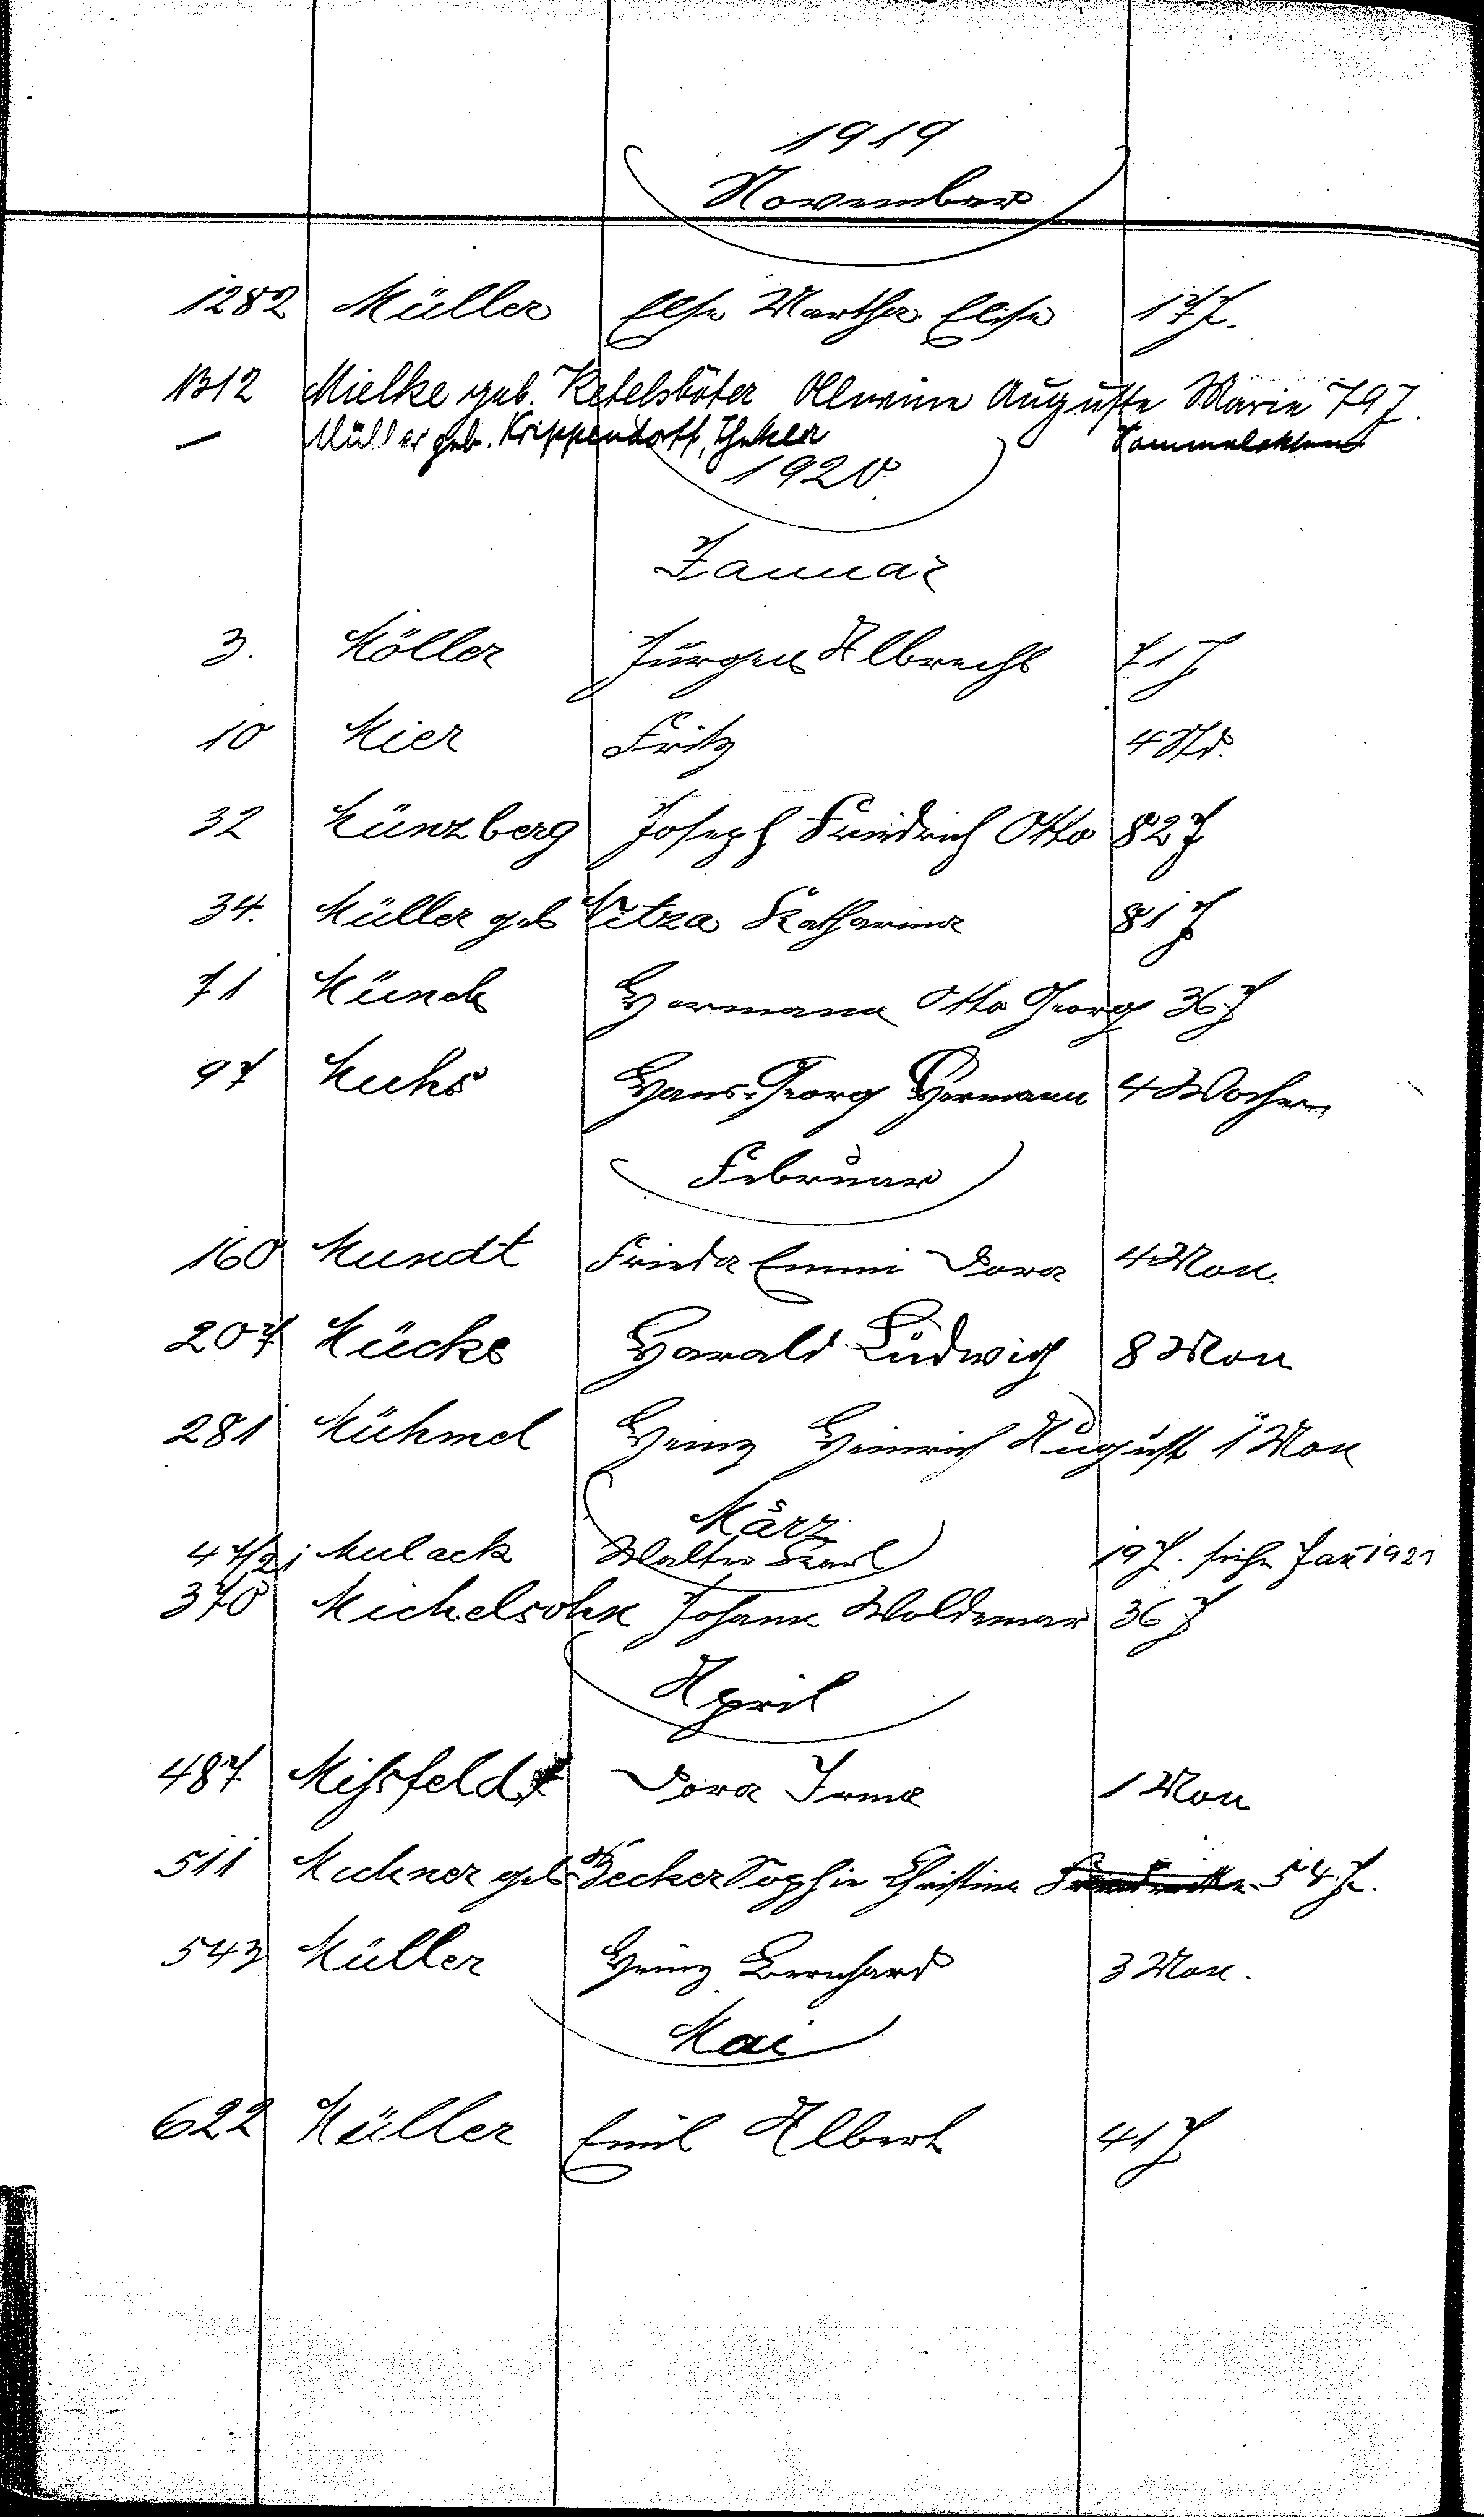 1919
November
1282 Müller Else Martha Elise 17 J.
1312 Mielke geb. Ketelsböter Auguste Marie 79 J.
— Müller geb. Krippendorff, Thekla Sammelakten
1920
Januar
3. Möller Jürgen Albrecht 71 J
10 Mier Fritz 4 Std.
32 Münzberg Joseph Friedrich Otto 82 J
34. Müller geb Vitza Katharina 81 J
71 Münch Hermann Otto Georg 36 J
97 Muhs Hans-Georg Hermann 4 Wochen
Februar
160 Mundt Frieda Emmi Dora 4 Mon.
207 Mücke Harald Ludwig 8 Mon
281 Mühmel Heinz Heinrich August 1 Mon
März
47/21 Mulack Walter Karl 19 J. siehe Jan 1921
370 Michelsohn Johann Woldemar 36 J
April
487 Missfeldt Dora Irma 1 Mon
511 Mechner geb Becker Sophie Christine 54 J.
543 Müller Heinz Bernhard 3 Mon.
Mai
622 Müller Emil Albert 41 J